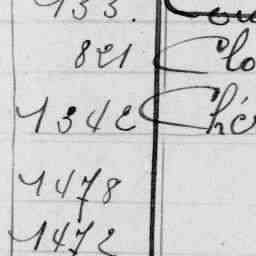 133.
821 Clo
1342 Ché
1478
1472